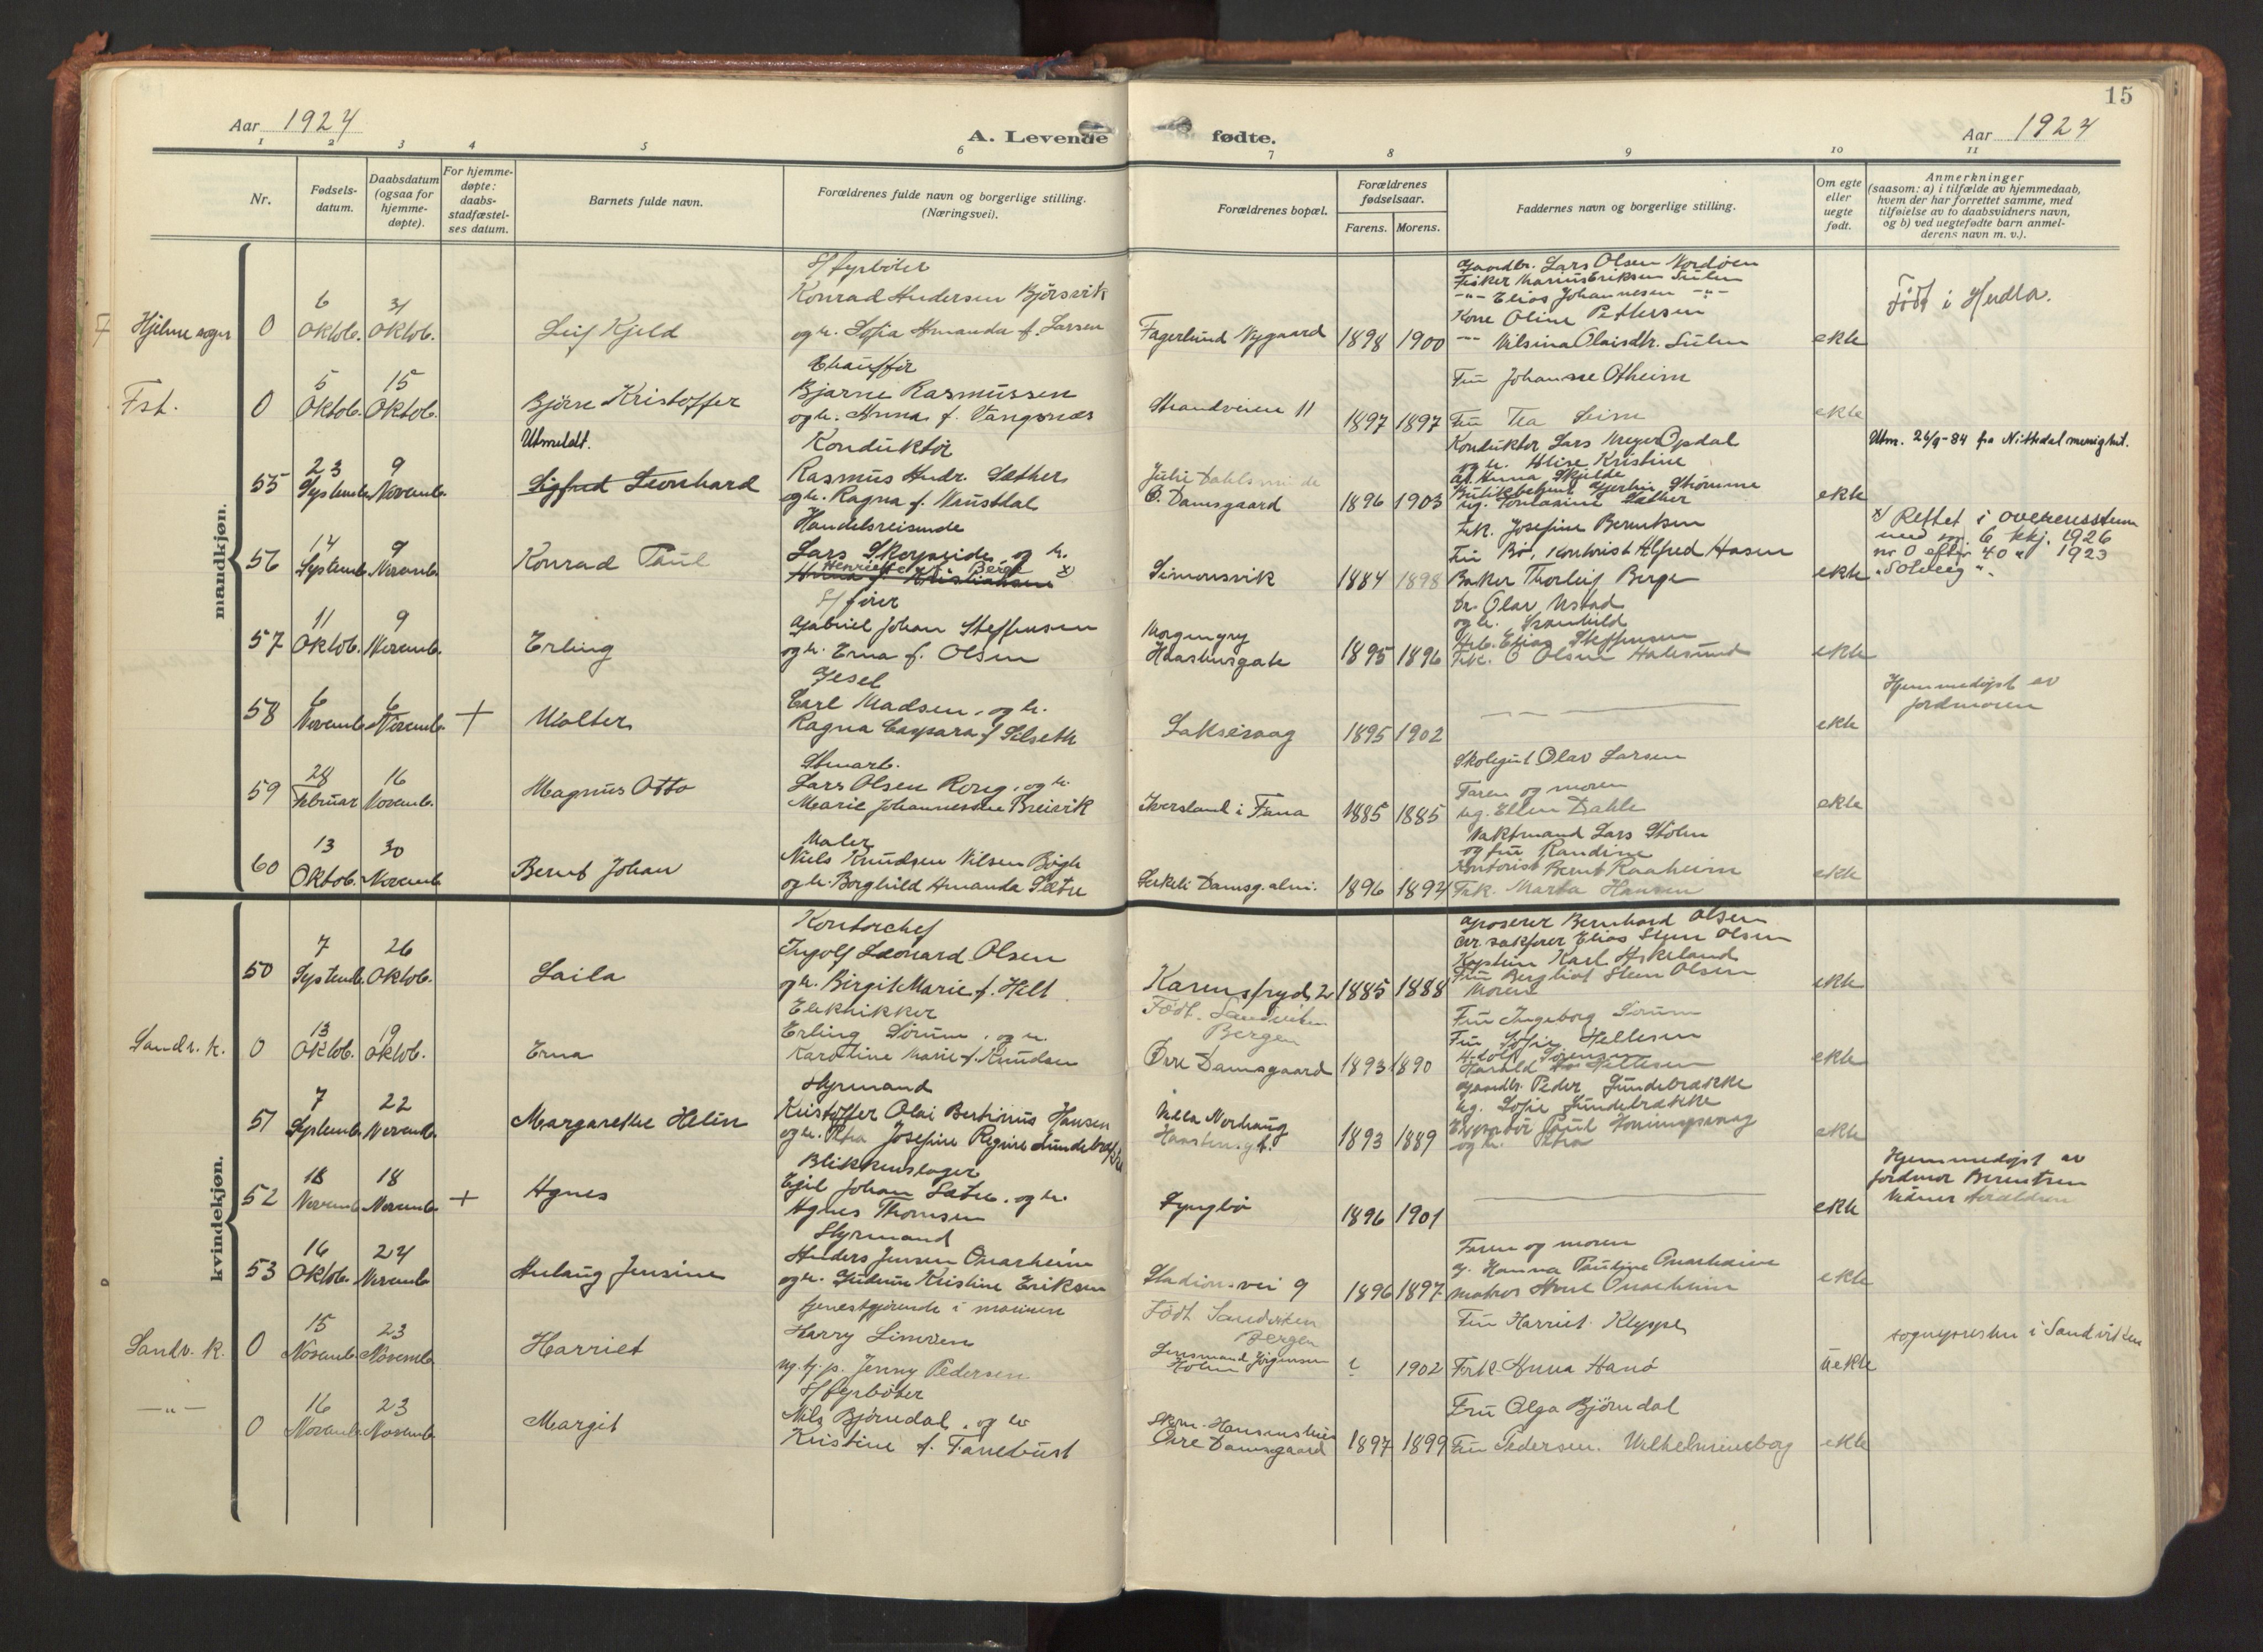 15
Aar 1924
A. Levende fødte.
Aar 1924
1 2 3 4 5 6 7 8 9 10 11
Nr.
Fødsels-
datum.
Daabsdatum
(ogsaa for
hjemme-
døpte).
For hjemme-
døpte:
daabs-
stadfæstel-
ses datum.
Barnets fulde navn.
Forældrenes fulde navn og borgerlige stilling.
(Næringsvei).
Forældrenes bopæl.
Forældrenes
fødselsaar.
Farens. Morens.
Faddernes navn og borgerlige stilling.
Om egte
eller
uegte
født.
Anmerkninger
(saasom: a) i tilfælde av hjemmedaab,
hvem der har forrettet samme, med
tilføielse av to daabsvidners navn,
og b) ved uegtefødte barn anmel-
derens navn m. v.).
mandkjøn.
Hjelme sogn 0
6 Oktob.
31 Oktob.
Leif Kjeld
S/fyrbøter
Konrad Andersen Bjørsvik
og h. Sofia Amanda f. Larsen
Fagerlund Nygaard
1898 1900
Gaardbr. Lars Olsen Nordøen
Fisker Marius Eriksen Sulen
-"- Elias Johannesen -"-
Kone Oline Pettersen
-"- Nilsina Olaisdtr. Sulen
ekte
Født i Herdla.
Fst. 0
5 Oktob.
15 Oktob.
Bjørn Kristoffer
Chauffør
Bjarne Rasmussen
og h. Anna f. Vangsnes
Strandveien 11
1897 1897
Fru Johanne Otheim
Fru Tea Seim
ekte
55
23 Septemb.
9 Novemb.
Utmeldt.
Sigfred Leonhard
Konduktør
Rasmus Andr. Sæther
og h. Ragna f. Naustdal
Ø. Damsgaard
1896 1903
Konduktør Lars Meyer Opdal
og h. Alise Kristine
Anna Skjelde
ug. Tomasine Sæther
ekte
Utm. 26/9-84 fra Nittedal menighet.
56
14 Septemb.
9 Novemb.
Konrad Paul
Handelsreisende
Lars Skorpeide og h.
Henriette f. Berge x)
Anna f. Kristiansen
Simonsvik
1884 1898
Frk. Josefine Berentsen
Fru Bø, Kontorist Alfred Hasen
Baker Thorleif Berge
ekte
x) Rettet i overensstem
med nr. 6 kkj. 1926
nr 0 efter 40 a 1923
"Solveig".
57
11 Oktob.
9 Novemb.
Erling
S/fører
Gabriel Johan Steffensen
og h. Erna f. Olsen
Morgengry
Haastensgate
1895 1896
Dr. Olav Ustad
og h. Svanhild
Arb. Elias Steffensen
Frk. O Olsen
ekte
58
6 Novemb.
6 Novemb.
+
Walter
Gesel
Carl Madsen, og h.
Ragna Caspara f. Silseth
Laksevaag
1895 1902
ekte
Hjemmedøpt av
jordmoren
59
28 Februar
16 Novemb.
Magnus Otto
Stuearb.
Lars Olsen Rong, og h.
Marie Johannesdtr Breivik
Iversland i Fana
1885 1885
Skolegut Olav Larsen
Faren og moren
ug. Ellen Dahle
ekte
60
13 Oktob.
30 Novemb.
Bernt Johan
Maler
Niels Knudsen Nilsen Bøgh
og h. Borghild Amanda Sætre
Damsg. alm.
1896 1892
Vaktmand Lars Stølen
og fru Randine
Kontorist Bernt Raaheim
Frk. Marta Hansen
ekte
kvindekjøn.
50
7 Septemb.
26 Oktob.
Laila
Kontorchef
Ingolf Leonard Olsen
og h. Birgit Marie f. Hilt
Karensfryd 2
1885 1888
Groserer Bernhard Olsen
Overretssakfører Elias Steen Olsen
Kaptein Karl Askeland
Fru Bergliot Steen Olsen
Moren
ekte
Sandv. k. 0
13 Oktob.
19 Oktob.
Erna
Elektrikker
Erling Sørum, og h.
Karoline Marie f. Knudsen
Født Sandviken
Bergen
Øvre Damsgaard
1893 1890
Fru Ingeborg Sørum
Fru Sofie Hellesen
Adolf Sørensen
Harald Hellesen
ekte
51
7 Septemb.
22 Novemb.
Margarethe Helen
Styrmand
Kristoffer Olai Bertinius Hansen
og h. Petra Josefine Regine Lundebrække
Villa Norhaug
Haastensgt.
1893 1889
Gaardbr. Peder Lundebrække
ug. Sofie Lundebrække
Paul Honningsvaag
og h. Petra
ekte
52
18 Novemb.
18 Novemb.
+
Agnes
Blikkenslager
Egil Johan Sætre, og h.
Agnes Thomsen
Lyngbø
1896 1901
ekte
Hjemmedøpt av
jordmor Berentsen
Vidner forældren
53
16 Oktob.
24 Novemb.
Anlaug Jensine
Styrmand
Anders Jensen Onarheim
og h. Gudrun Kristine Eriksen
Stadionsvei 9
1896 1897
Faren og moren
g. Hanna Pauline Onarheim
matros Arne Onarheim
ekte
Sandv. k. 0
15 Novemb.
23 Novemb.
Harriet
tjenestgjørende i marinen
Harry Simsen
ug. tj. p. Jenny Pedersen
Født Sandviken
Bergen
Lensmand Jørgensen
Holen
? 1902
Fru Harriet Kleppe
Frk. Anna Hanø
uekte
sognepresten i Sandviken
-"- 0
16 Novemb.
23 Novemb.
Margit
S/fyrbøter
Nils Bjørndal, og h.
Kristine f. Fanebust
Skom. Hansens hus
Øvre Damsgaard
1897 1899
Fru Olga Bjørndal
Fru Pedersen. Wilhelmineborg
ekte